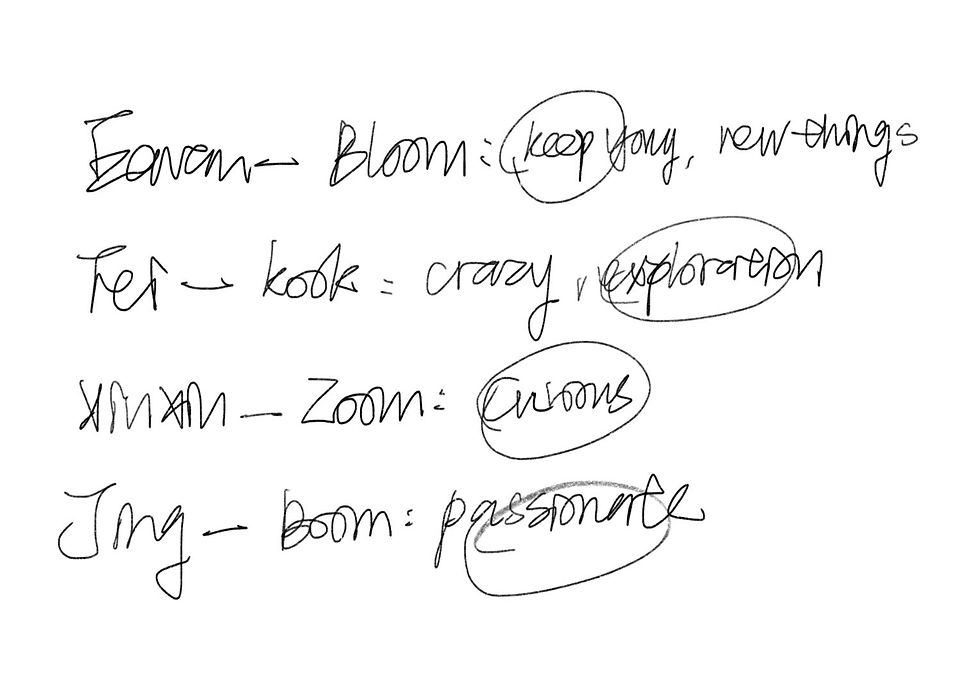 — Bloom: keep yong, new things
Fei — kook: crazy, exploration
xinxin — Zoom: curious
Jing — Boom: passionate